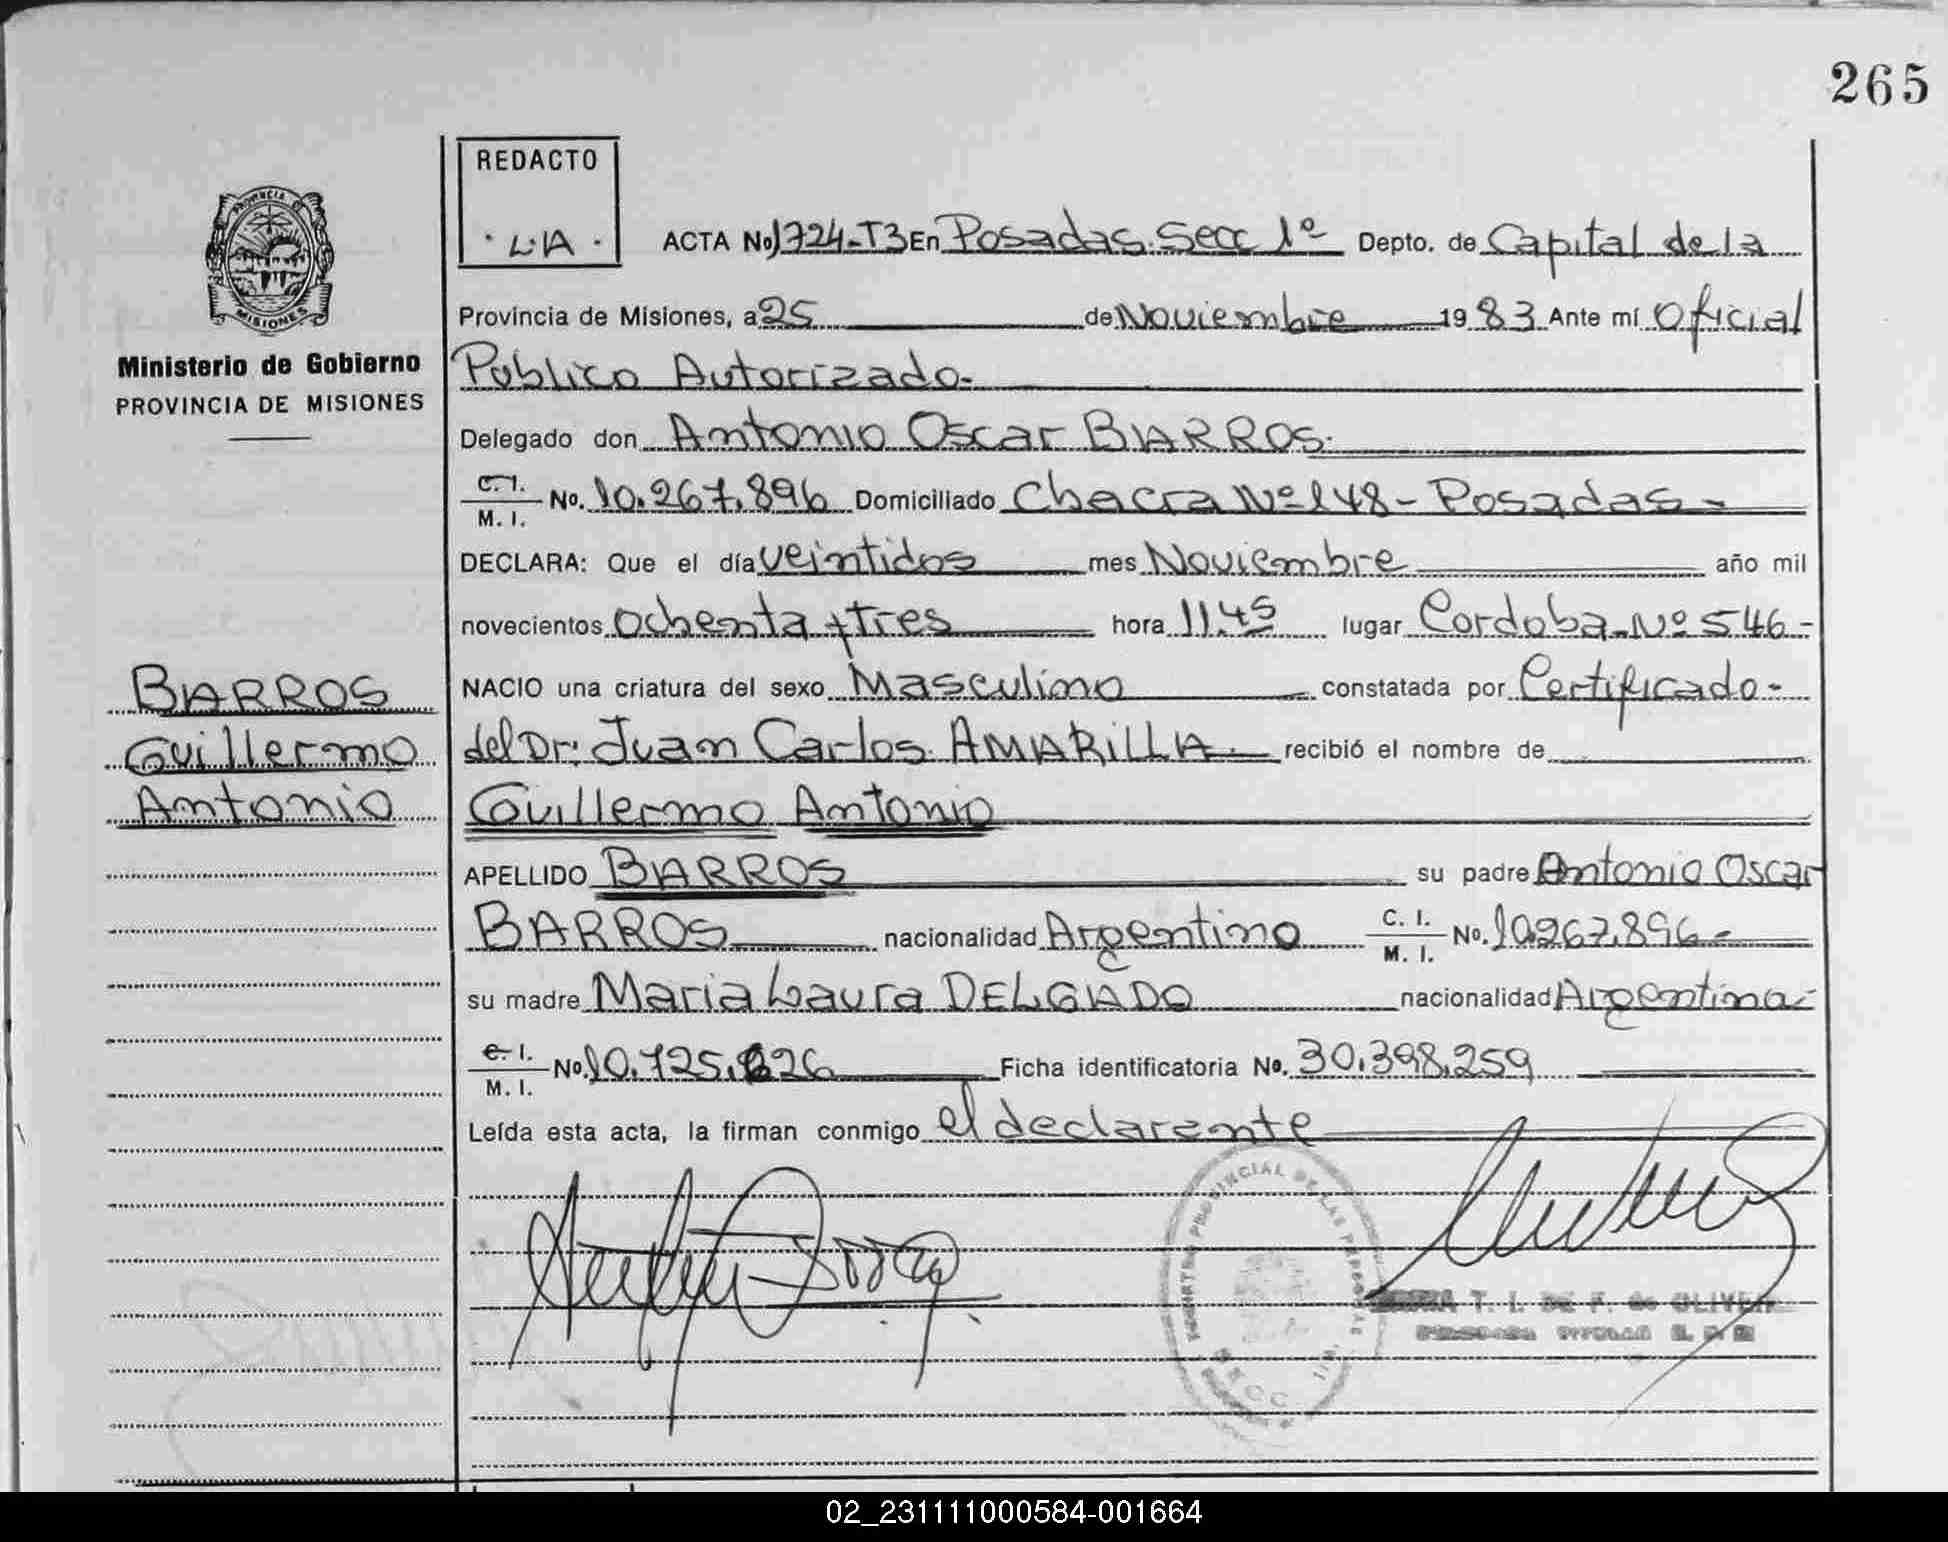 265
REDACTO
L.A.
PROVINCIA DE
MISIONES
Ministerio de Gobierno
PROVINCIA DE MISIONES
ACTA No 1724-T3 En Posadas. Secc 1º Depto. de Capital de la
Provincia de Misiones, a 25 de Noviembre 1983 Ante mí Oficial
Público Autorizado-
Delegado don Antonio Oscar BARROS.
C. I. / M. I. No. 10.267.896 Domiciliado Chacra Nº 148 - Posadas -
DECLARA: Que el día veintidos mes Noviembre año mil
novecientos ochenta y Tres hora 11.45 lugar Cordoba Nº 546-
NACIO una criatura del sexo Masculino constatada por Certificado-
del Dr: Juan Carlos AMARILLA- recibió el nombre de
Guillermo Antonio
BARROS
Guillermo
Antonio
APELLIDO BARROS su padre Antonio Oscar
BARROS nacionalidad Argentino C. I. / M. I. No. 10.267.896-
su madre Maria Laura DELGADO nacionalidad Argentina-
C. I. / M. I. No. 10.725.626 Ficha identificatoria No. 30.398.259
Leída esta acta, la firman conmigo el declarente
PROVINCIAL DE LAS PERSONAS
T. I. DE F. de OLIVERA
02_231111000584-001664